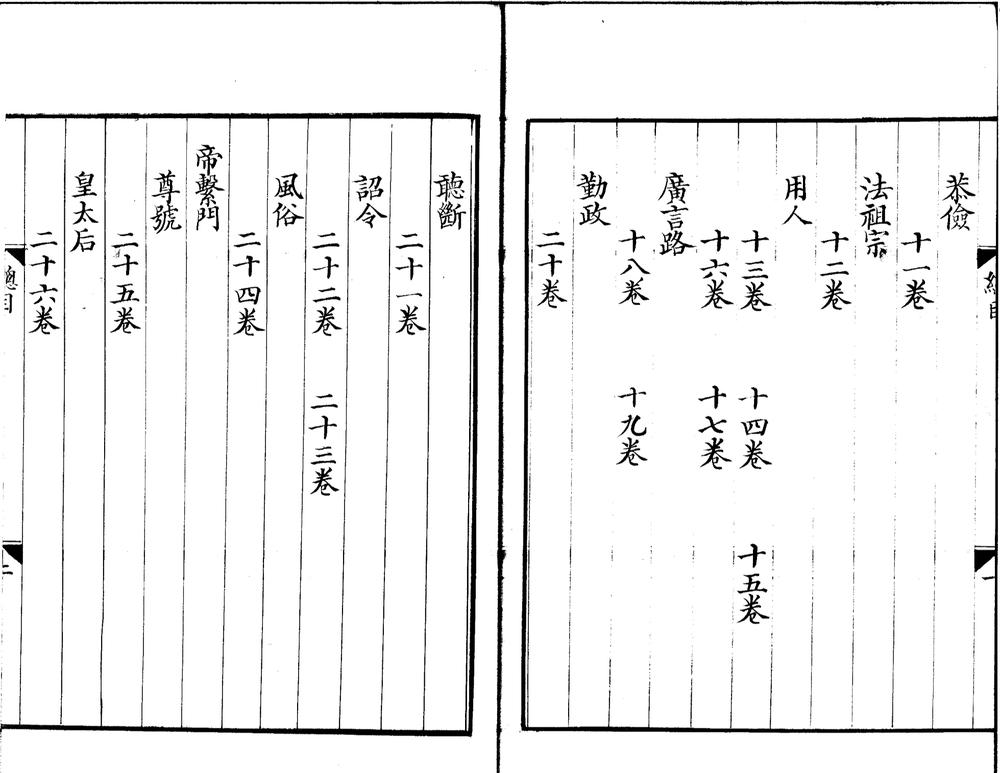 恭儉
十一卷
法祖宗
十二卷
用人
十三卷 十四卷 十五卷
十六卷 十七卷
廣言路
十八卷 十九卷
勤政
二十卷
聽斷
二十一卷
詔令
二十二卷 二十三卷
風俗
二十四卷
帝繫門
尊號
二十五卷
皇太后
二十六卷
總目